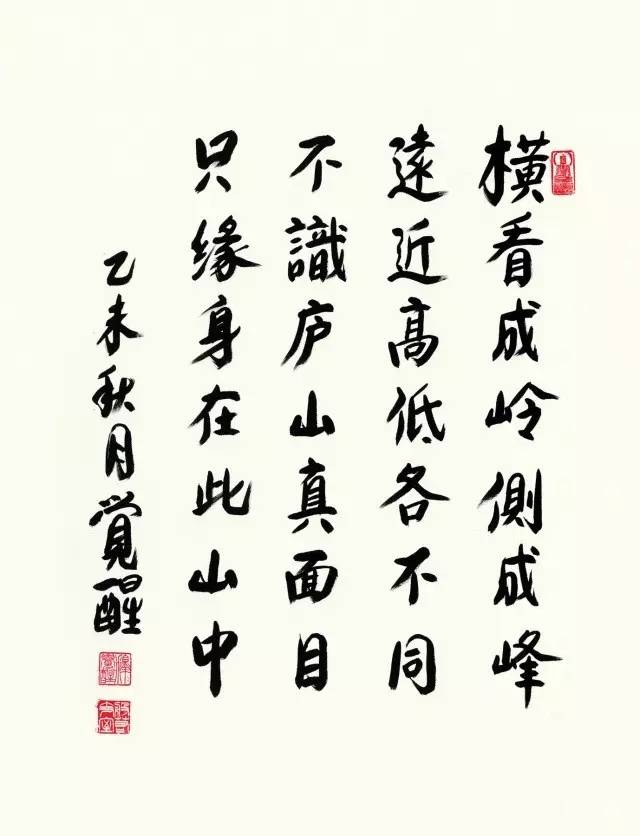 橫看成岭側成峰
遠近高低各不同
不識庐山真面目
只缘身在此山中
乙未秋月覺醒